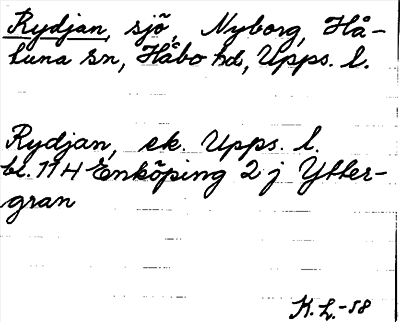 Rydjan, sjö, Nyborg, Hå-
tuna sn, Håbo hd, Upps. l.
Rydjan, ek. Upps. l.
bl. 11 H Enköping 2 j Ytter-
gran
K.L.-58